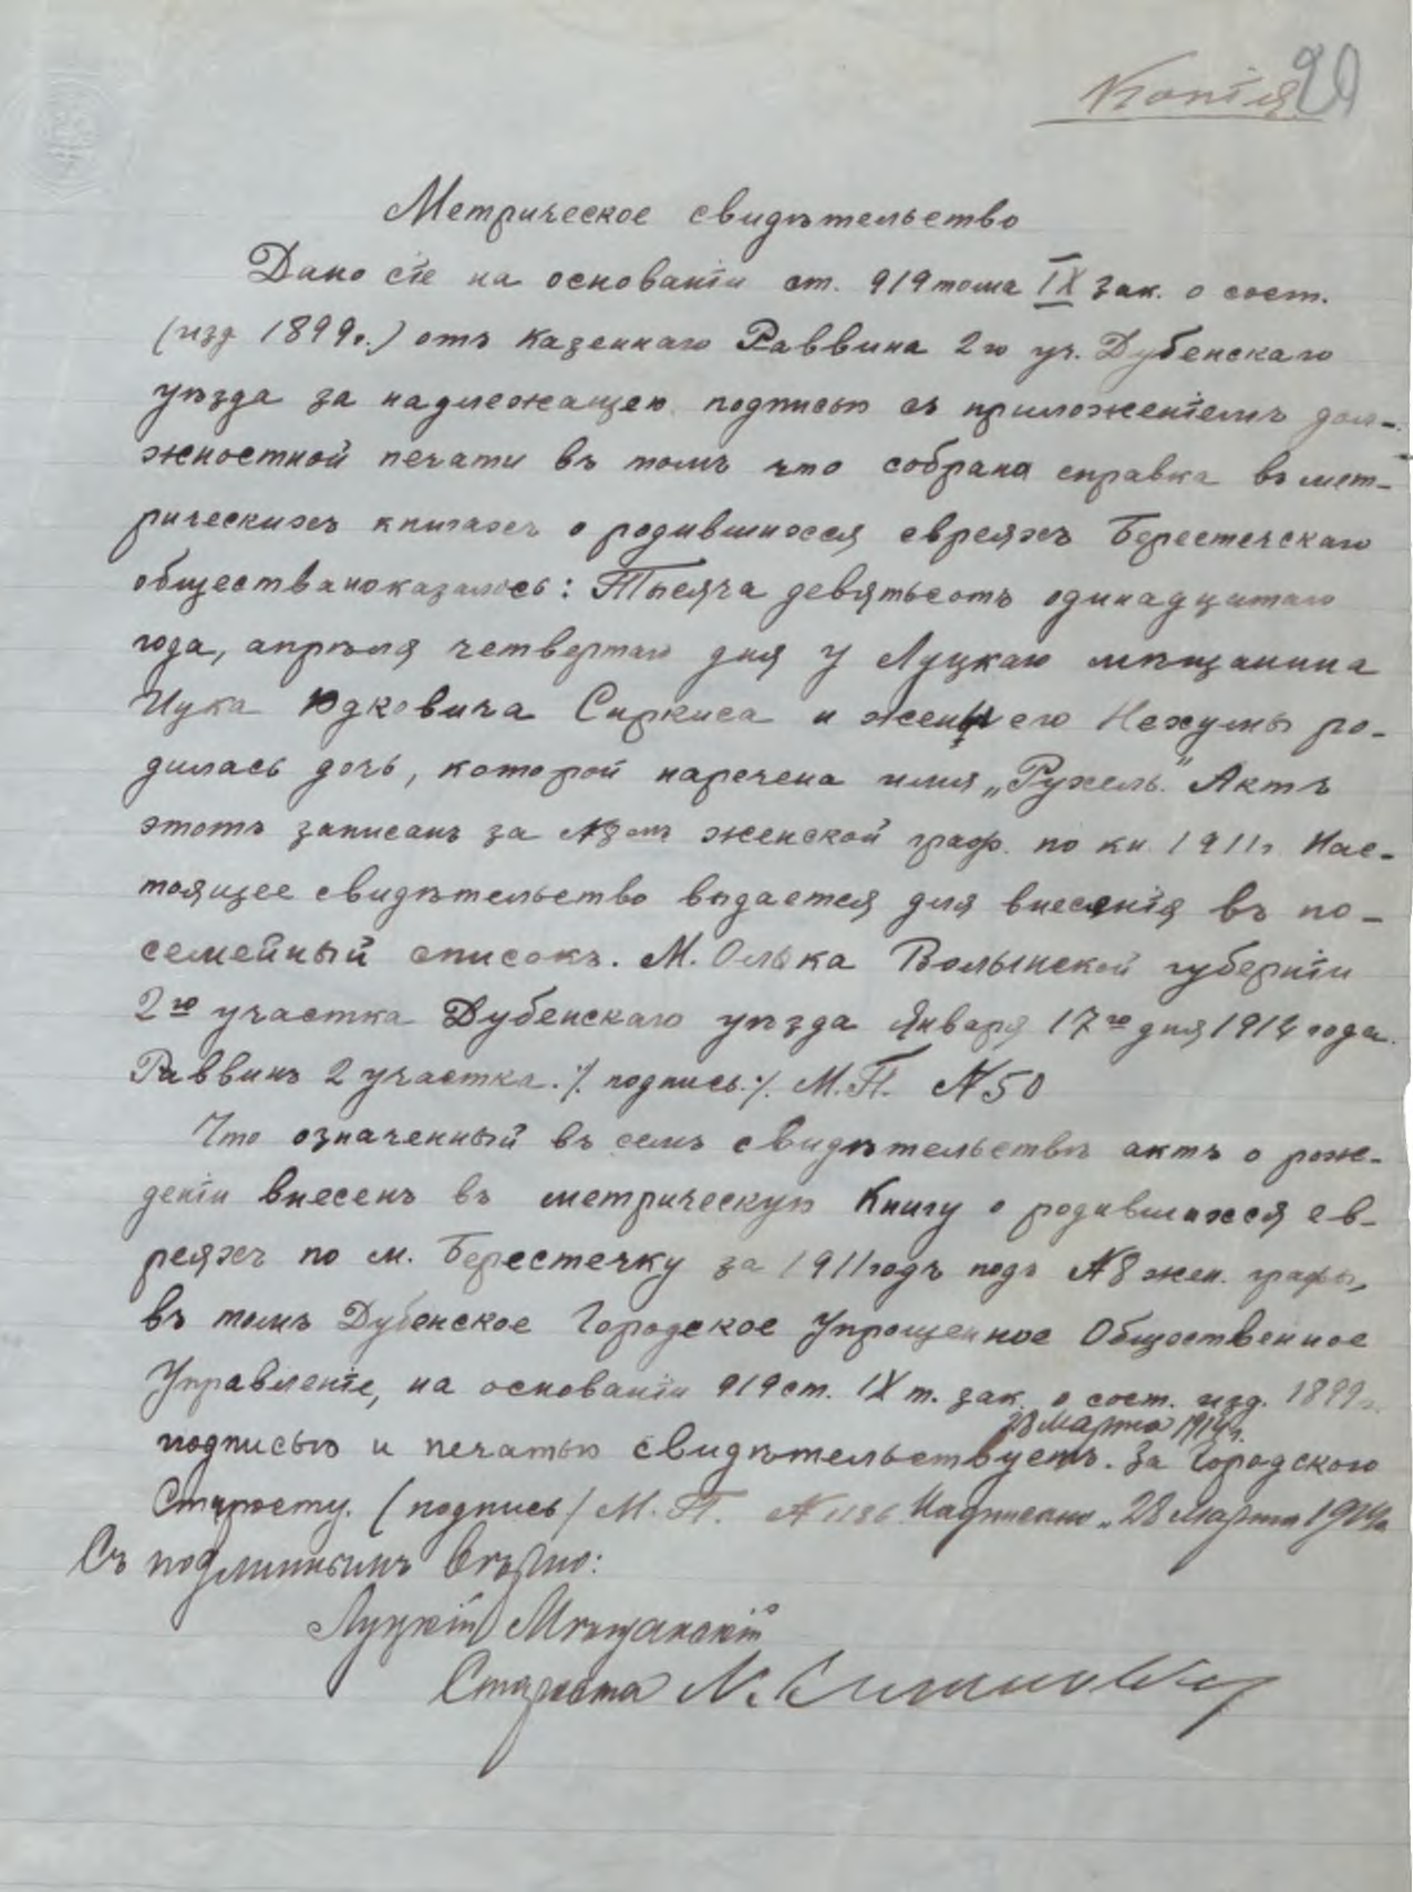 Копія 20
Метрическое свидѣтельство
Дано сіе на основаніи ст. 919 тома IX зак. о сост.
(изд 1899г.) отъ казеннаго Раввина 2го уч. Дубенскаго
уѣзда за надлежащею подписью съ приложеніемъ дол-
жностной печати въ томъ что собрана справка въ мет-
рическихъ книгахъ о родившихся евреяхъ Берестечскаго
общества и оказалось: Тысяча девятьсотъ одинадцатаго
года, апрѣля четвертаго дня у Луцкаго мѣщанина
Ицка Юдковича Сиркиса и жены его Нехумы ро-
дилась дочь, которой наречена имя „Рухель." Актъ
этотъ записанъ за №8омъ женской граф. по кн. 1911г Нас-
тоящее свидѣтельство выдается для внесенія въ по-
семейный списокъ. М. Олыка Волынской губерніи
2го участка Дубенскаго уѣзда Января 17го дня 1914 года.
Раввинъ 2 участка ./. подпись ./. М.П. №50
Что означенный въ семъ свидѣтельствѣ актъ о рож-
деніи внесенъ въ метрическую Книгу о родившихся ев-
реяхъ по м. Берестечку за 1911годъ подъ №8 жен. графы,
въ томъ Дубенское Городское Упрощенное Общественное
Управленіе, на основаніи 919 ст. IX т. зак. о сост. изд. 1899г.
28 Марта 1914г.
подписью и печатью свидѣтельствуетъ. За Городского
Старосту. (подпись) М.П. №1186 Надписано „28 Марта 1914г
Съ подлиннымъ вѣрно:
Луцкій Мѣщанскій
Староста